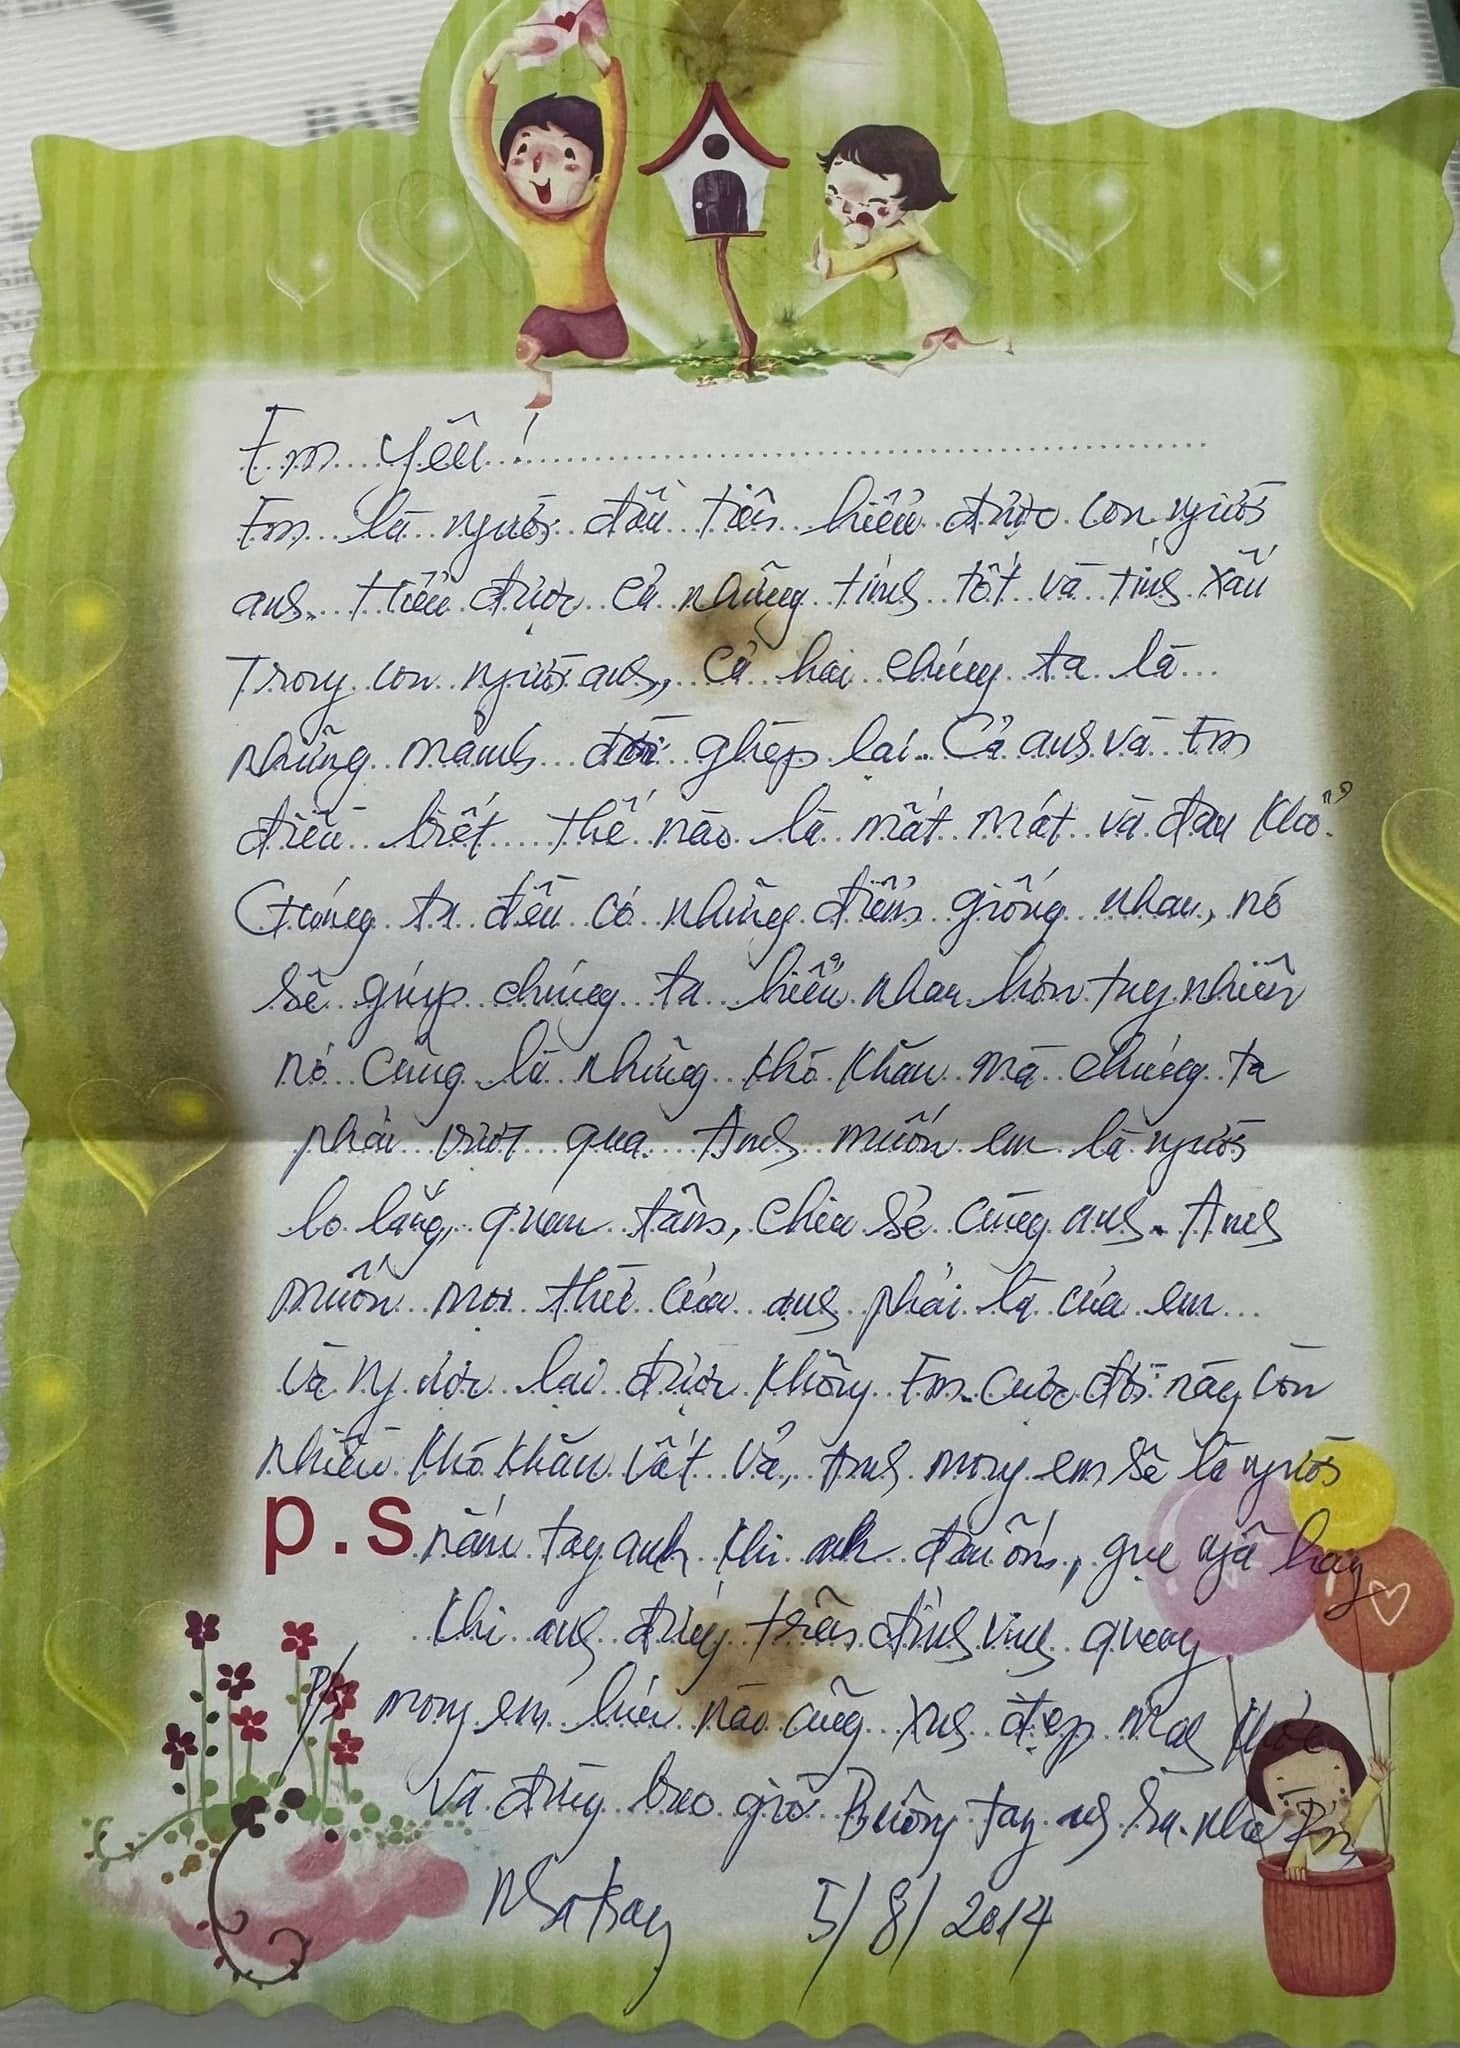 BẢN
Em yêu!
Em là người đầu tiên hiểu được con người
anh. Hiểu được cả những tính tốt và tính xấu
Trong con người anh, Cả hai chúng ta là
những mảnh đời ghép lại. Cả anh và Em
điều biết thế nào là mất mát và đau khổ.
Chúng ta đều có những điểm giống nhau, nó
sẽ giúp chúng ta hiểu nhau hơn tuy nhiên
nó cũng là những khó khăn mà chúng ta
phải vượt qua. Anh muốn em là người
lo lắng, quan tâm, chia sẻ cùng anh. Anh
muốn mọi thứ của anh phải là của em
và ngược lại được không Em. Cuộc đời này còn
nhiều khó khăn vất vả, Anh mong em sẽ là người
p.s nắm tay anh khi anh đau ốm, gục ngã hay
khi anh đứng trên đỉnh vinh quang
P/s mong em lúc nào cũng xinh đẹp mạnh khỏe
và đừng bao giờ Buông tay anh ra nha Em
Nha trang 5/8/2014